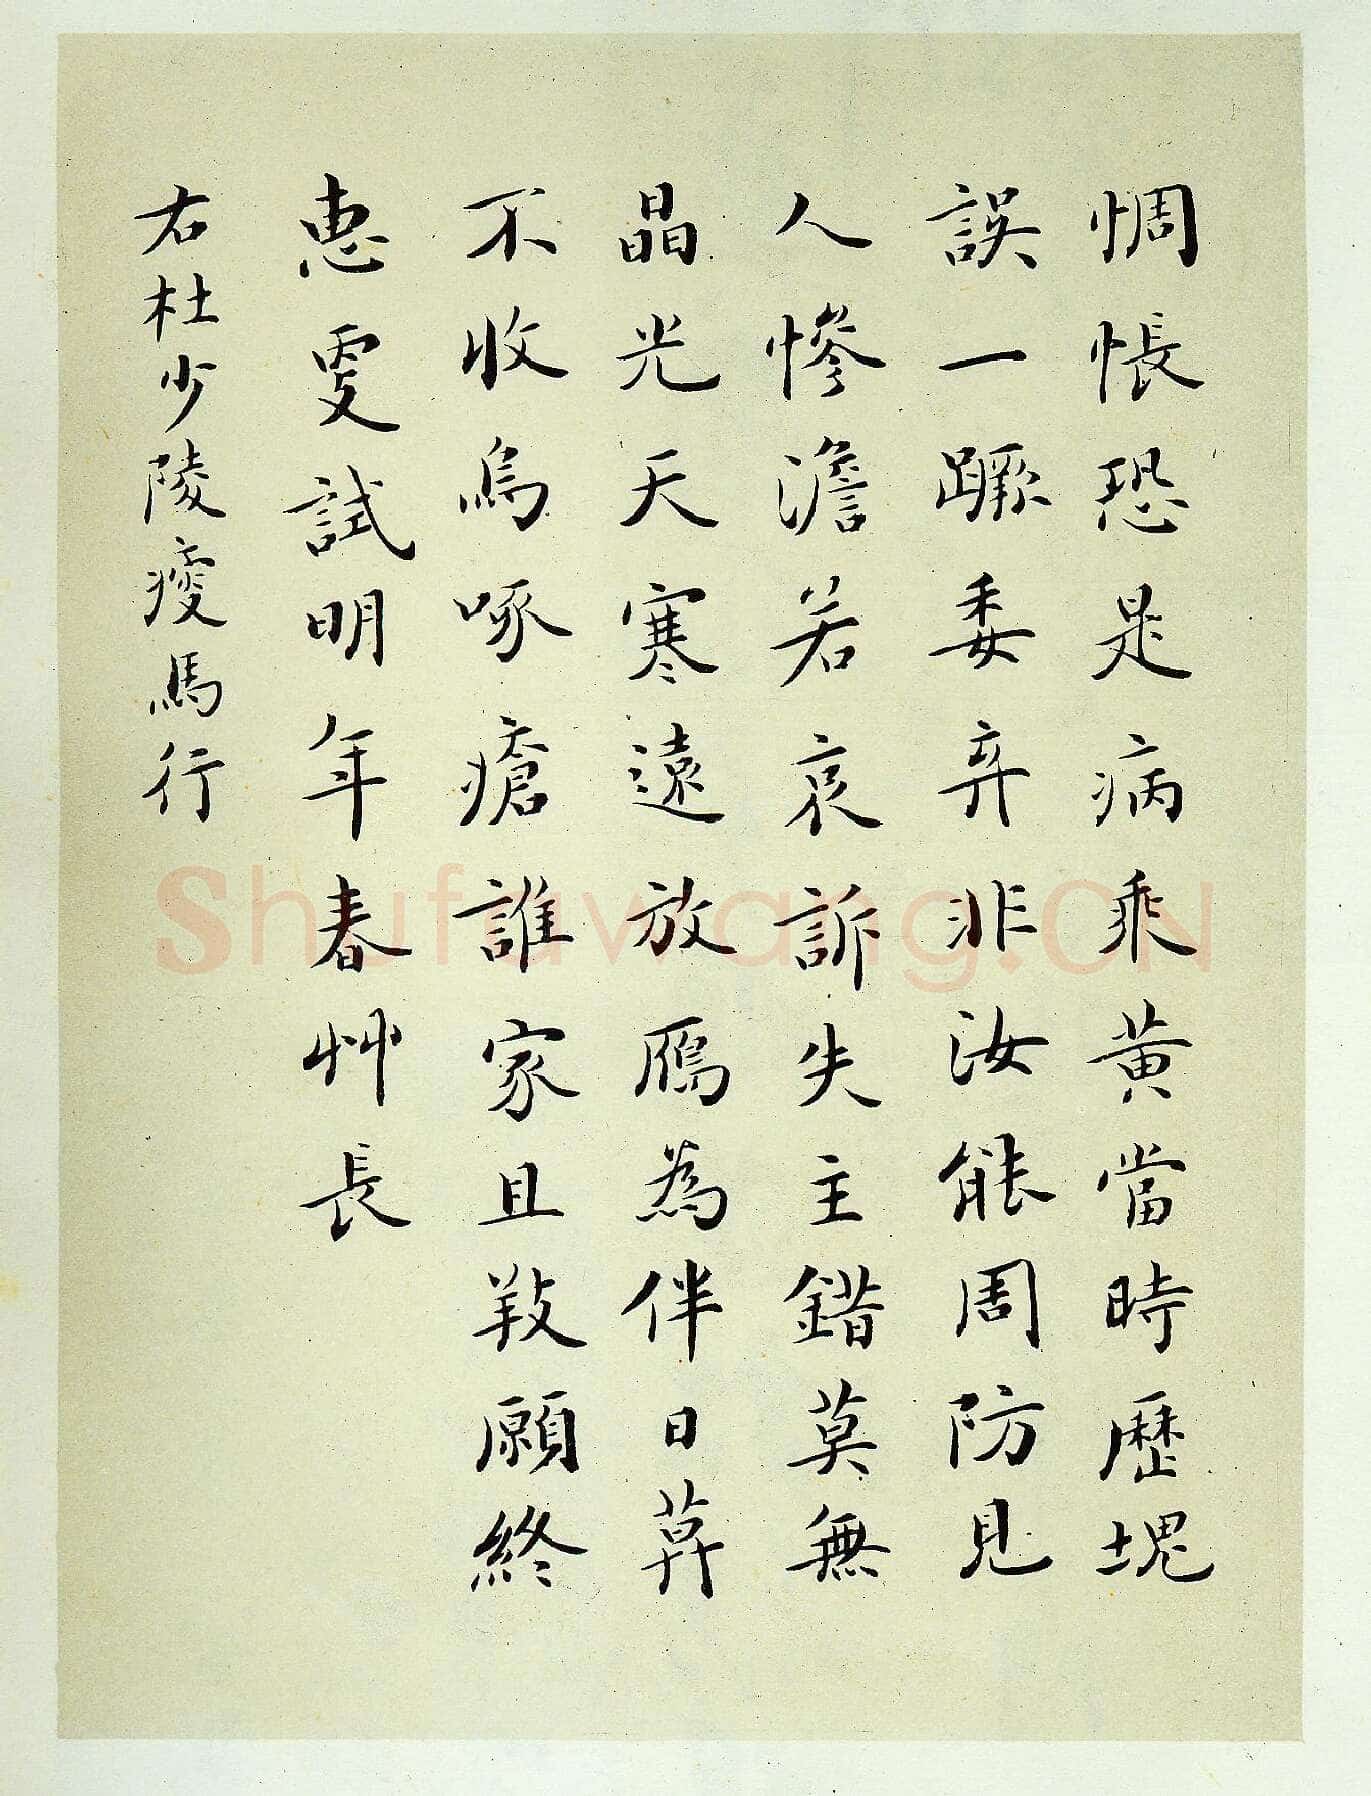 惆悵恐是病乘黃當時歷塊
誤一蹶委弃非汝能周防見
人慘澹若哀訴失主錯莫無
晶光天寒遠放鴈為伴日暮
不收烏啄瘡誰家且養願終
惠更試明年春艸長
右杜少陵瘦馬行
Shufawang.CN